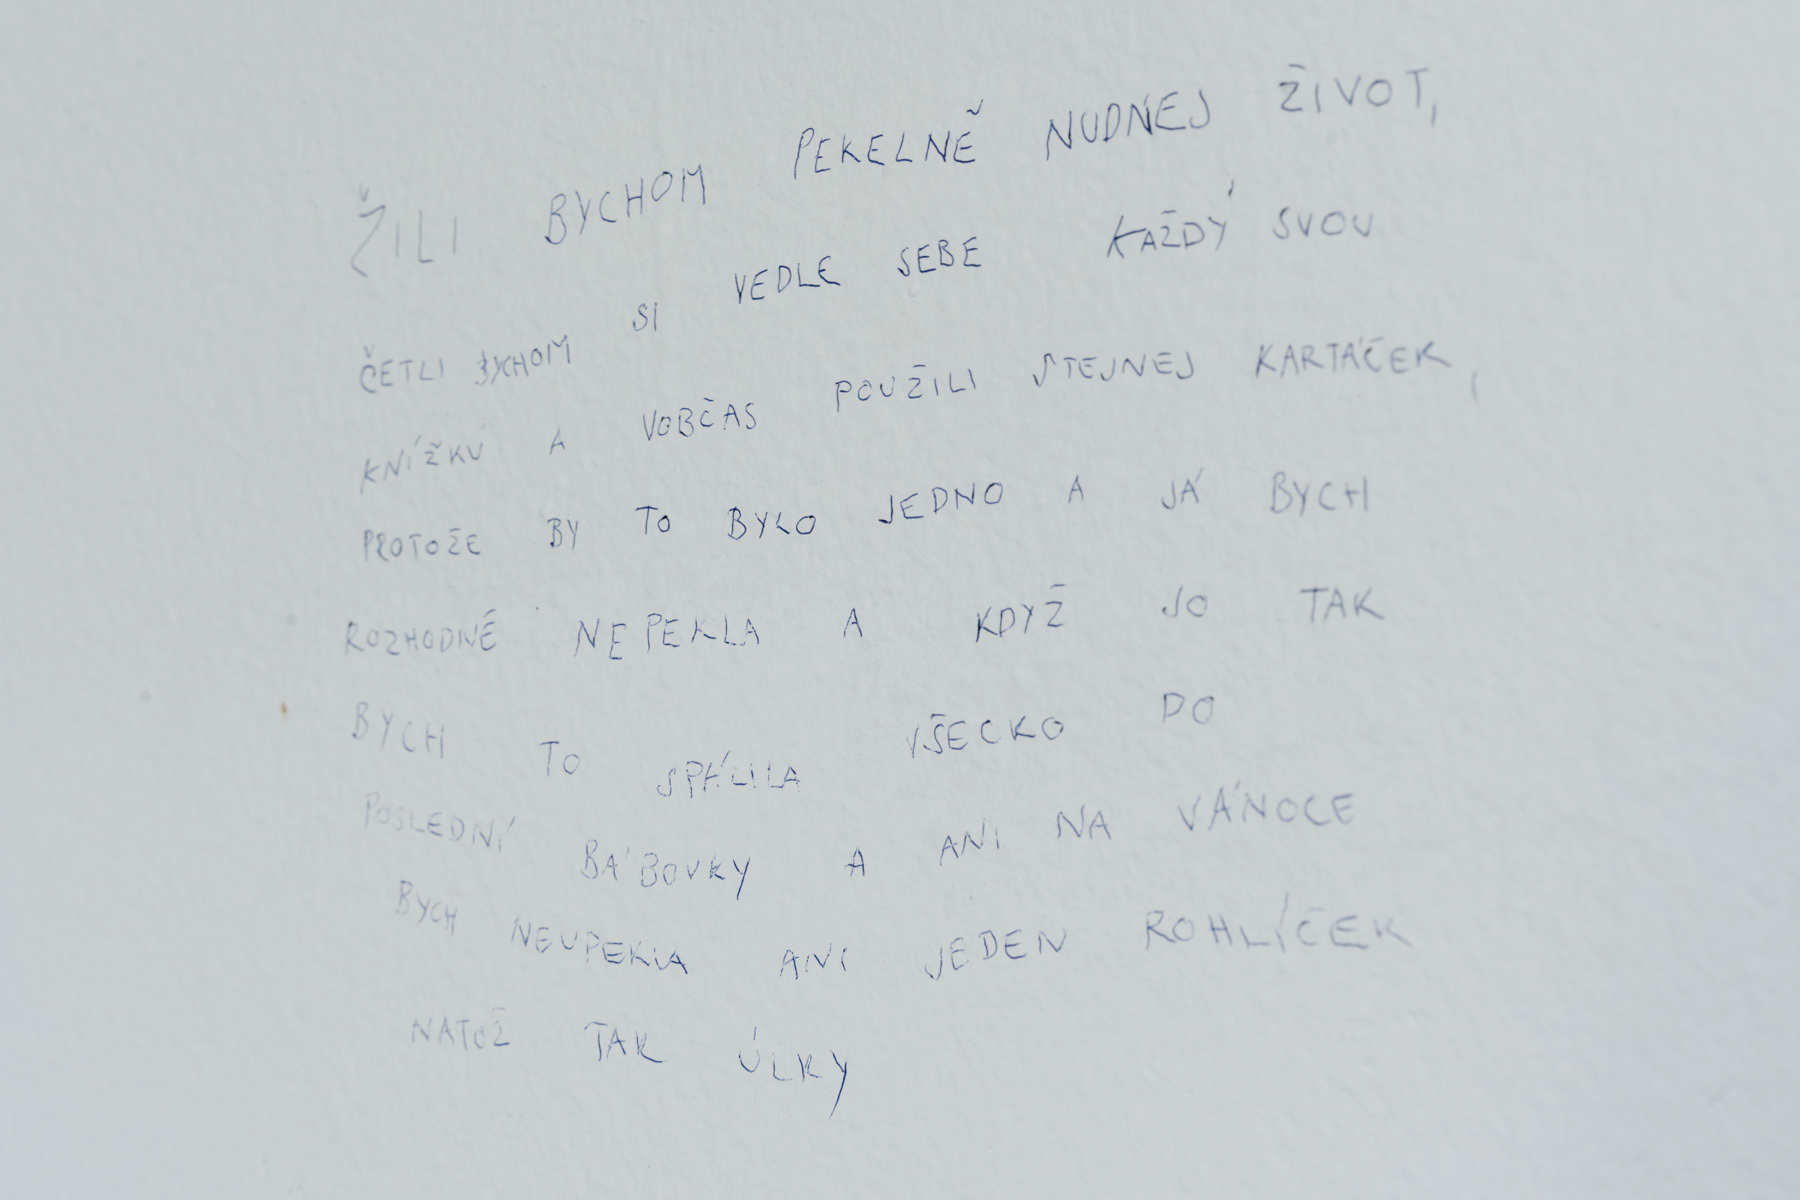 ŽILI BYCHOM PEKELNĚ NUDNEJ ŽIVOT,
ČETLI BYCHOM SI VEDLE SEBE KAŽDÝ SVOU
KNÍŽKU A VOBČAS POUŽILI STEJNEJ KARTÁČEK,
PROTOŽE BY TO BYLO JEDNO A JÁ BYCH
ROZHODNĚ NEPEKLA A KDYŽ JO TAK
BYCH TO SPÁLILA VŠECKO DO
POSLEDNÍ BÁBOVKY A ANI NA VÁNOCE
BYCH NEUPEKLA ANI JEDEN ROHLÍČEK
NATOŽ TAK ÚLKY